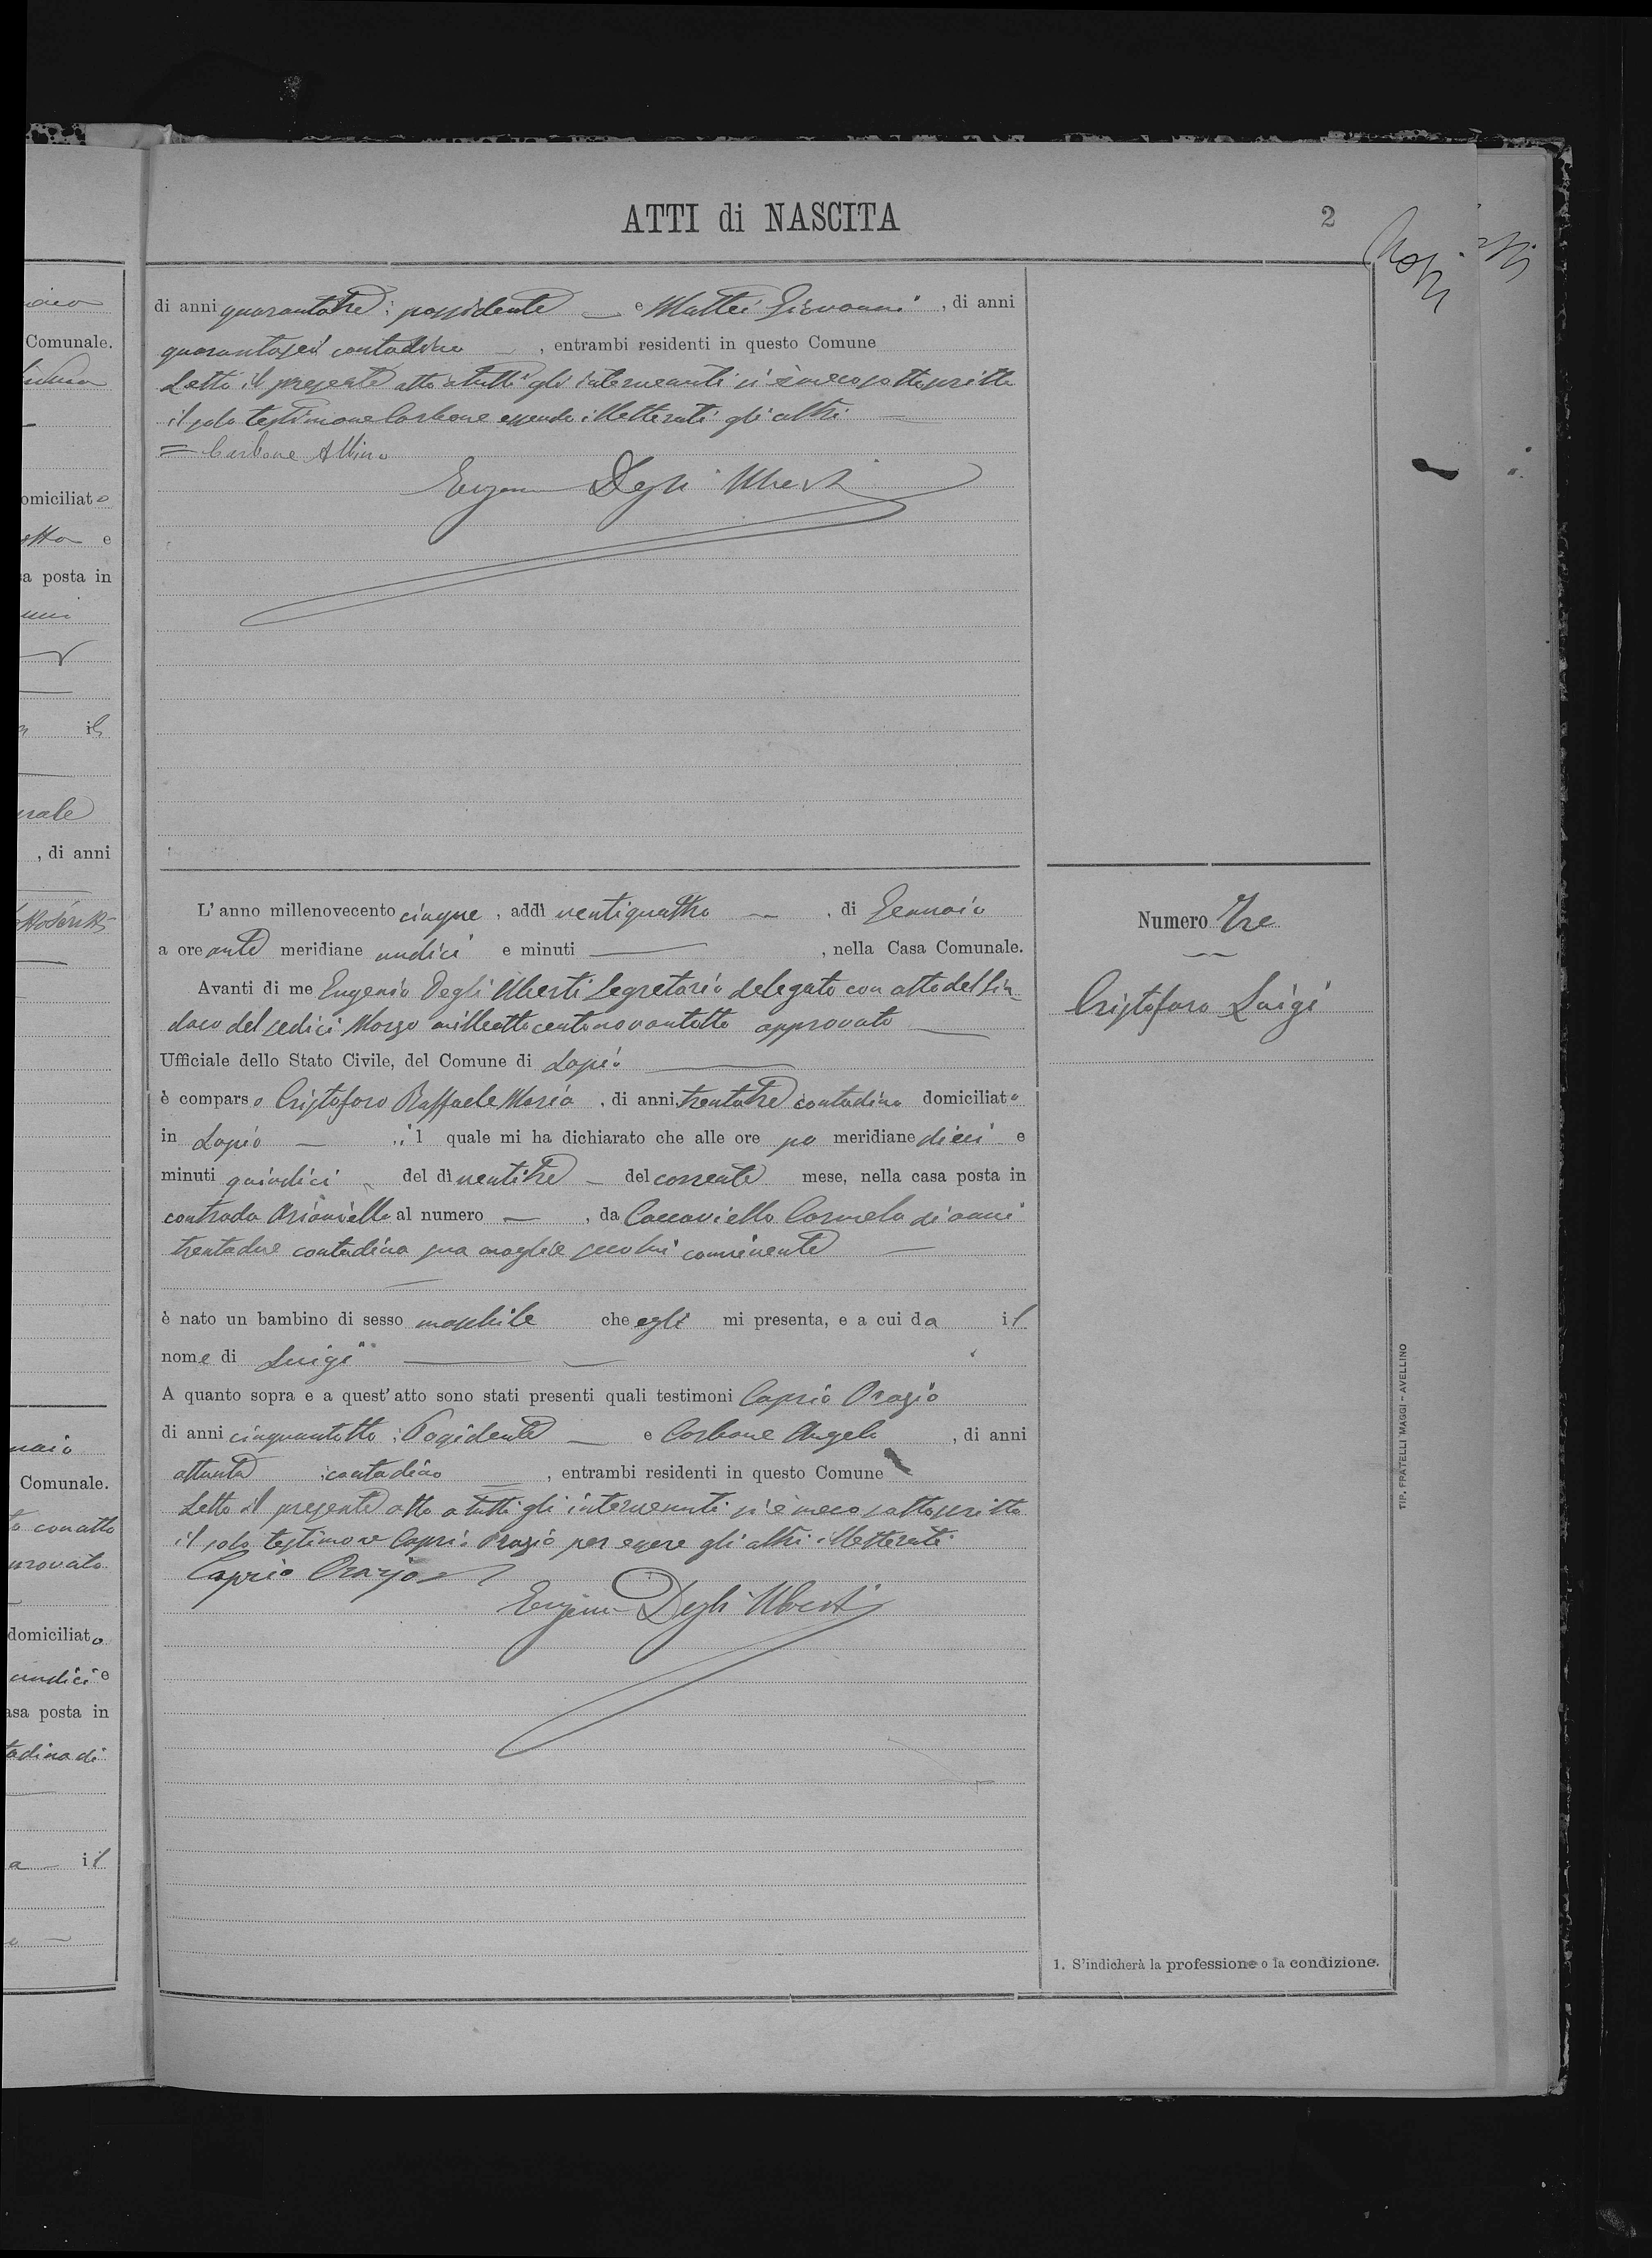 ATTI di NASCITA
2
di anni quarantatre possidente e Mattei Giovanni, di anni
quarantasei contadino, entrambi residenti in questo Comune
Letto il presente atto a tutti gli intervenuti si è meco sottoscritto
il solo testimone Carbone essendo illetterati gli altri
= Carbone Albino
Eugenio Degli Uberti
L'anno millenovecento cinque, addì ventiquattro, di Gennaio
a ore ante meridiane undici e minuti —, nella Casa Comunale.
Avanti di me Eugenio Degli Uberti Segretario delegato con atto del Sin-
daco del sedici Marzo milleottocentonovantotto approvato
Ufficiale dello Stato Civile, del Comune di Lapio
è comparso Cristofaro Raffaele Maria, di anni trentatre contadino domiciliato
in Lapio — il quale mi ha dichiarato che alle ore po meridiane dieci e
minuti quindici del dì ventitre — del corrente mese, nella casa posta in
contrada Arianiello al numero —, da Caccaviello Carmela di anni
trentadue contadina sua moglie seco lui convivente
è nato un bambino di sesso maschile che egli mi presenta, e a cui da il
nome di Luigi
A quanto sopra e a quest'atto sono stati presenti quali testimoni Caprio Orazio
di anni cinquantotto, Possidente — e Carbone Angelo, di anni
ottanta contadino, entrambi residenti in questo Comune
Letto il presente atto a tutti gli intervenuti si è meco sottoscritto
il solo testimone Caprio Orazio per essere gli altri illetterati
Caprio Orazio
Eugenio Degli Uberti
Numero Tre
Cristofaro Luigi
1. S'indicherà la professione o la condizione.
TIP. FRATELLI MAGGI - AVELLINO
Comunale.
omiciliato
e
sa posta in
il
, di anni
Comunale.
to con atto
provato
domiciliato
undici e
asa posta in
tadina di
a — il